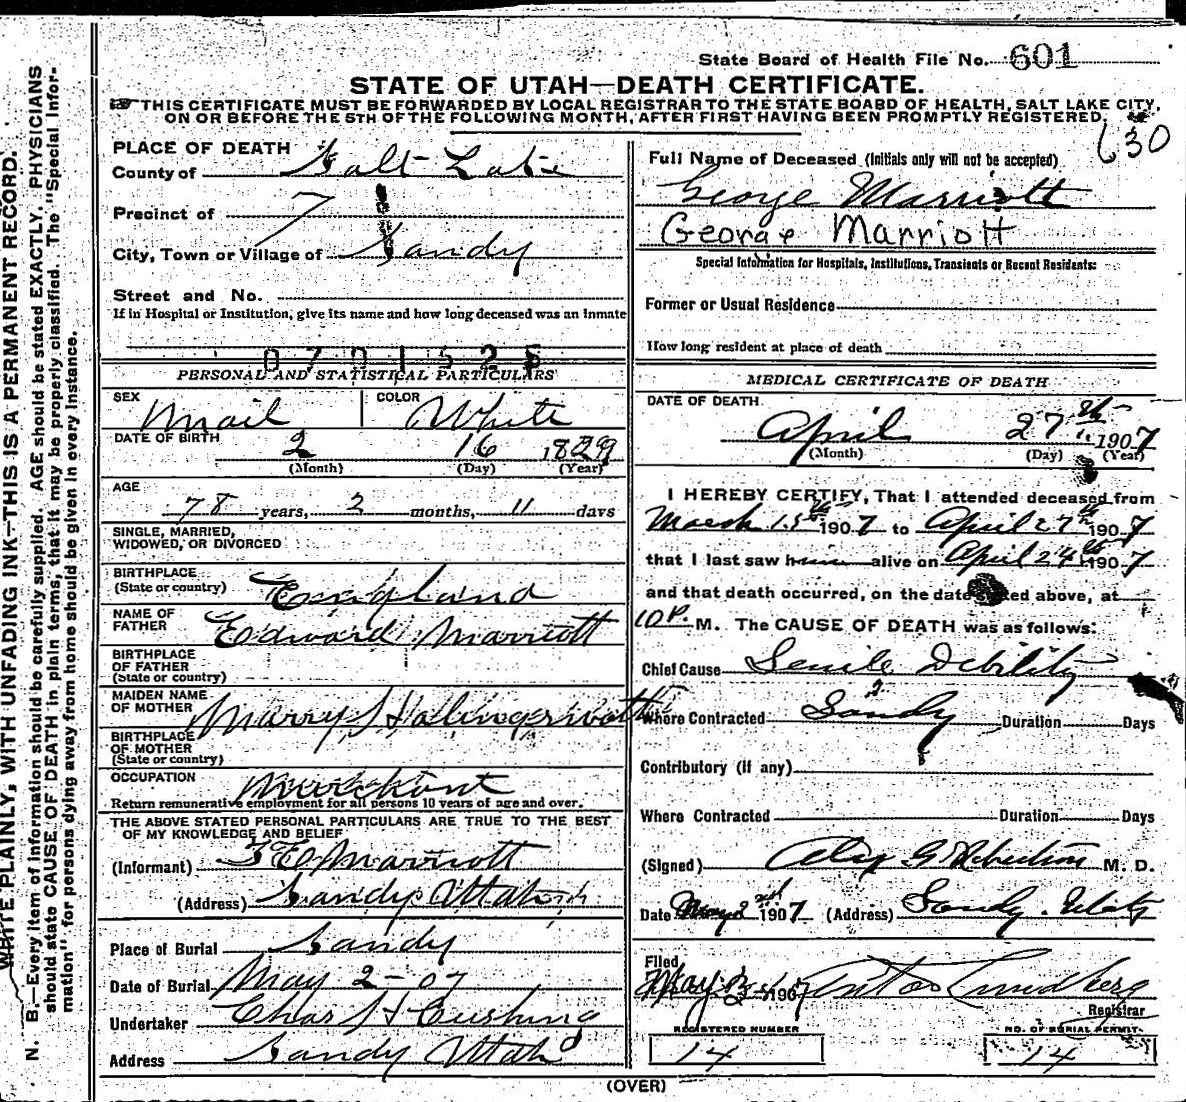 State Board of Health File No. 601
STATE OF UTAH—DEATH CERTIFICATE.
THIS CERTIFICATE MUST BE FORWARDED BY LOCAL REGISTRAR TO THE STATE BOARD OF HEALTH, SALT LAKE CITY,
ON OR BEFORE THE 5TH OF THE FOLLOWING MONTH, AFTER FIRST HAVING BEEN PROMPTLY REGISTERED.
630
WRITE PLAINLY, WITH UNFADING INK—THIS IS A PERMANENT RECORD.
N. B.—Every item of information should be carefully supplied. AGE should be stated EXACTLY. PHYSICIANS
should state CAUSE OF DEATH in plain terms, that it may be properly classified. The "Special Infor-
mation" for persons dying away from home should be given in every instance.
PLACE OF DEATH
County of Salt Lake
Precinct of 7
City, Town or Village of Sandy
Street and No.
If in Hospital or Institution, give its name and how long deceased was an inmate
PERSONAL AND STATISTICAL PARTICULARS
SEX Mail COLOR White
DATE OF BIRTH 2 16 1829
(Month) (Day) (Year)
AGE
78 years, 2 months, 11 days
SINGLE, MARRIED,
WIDOWED, OR DIVORCED
BIRTHPLACE
(State or country) England
NAME OF
FATHER Edward Marriott
BIRTHPLACE
OF FATHER
(State or country)
MAIDEN NAME
OF MOTHER Marry Holingsworth
BIRTHPLACE
OF MOTHER
(State or country)
OCCUPATION
Return remunerative employment for all persons 10 years of age and over.
THE ABOVE STATED PERSONAL PARTICULARS ARE TRUE TO THE BEST
OF MY KNOWLEDGE AND BELIEF
(Informant) Marriott
(Address) Sandy Utah
Place of Burial Sandy
Date of Burial May 2-07
Undertaker Chas Cushing
Address Sandy Utah
Full Name of Deceased (Initials only will not be accepted)
George Marriott
George Marriott
Special Information for Hospitals, Institutions, Transients or Recent Residents:
Former or Usual Residence
How long resident at place of death
MEDICAL CERTIFICATE OF DEATH
DATE OF DEATH
April 27th 1907
(Month) (Day) (Year)
I HEREBY CERTIFY, That I attended deceased from
March 15th 1907 to April 27th 1907
that I last saw him alive on April 24th 1907
and that death occurred, on the date stated above, at
10 P. M. The CAUSE OF DEATH was as follows:
Chief Cause Senile Debility
Where Contracted Sandy Duration Days
Contributory (if any)
Where Contracted Duration Days
(Signed) Alex G Robertson M. D.
Date May 2nd 1907 (Address) Sandy. Utah
Filed
May 1907 Anton Lundberg
Registrar
REGISTERED NUMBER
14
NO. OF BURIAL PERMIT
14
(OVER)